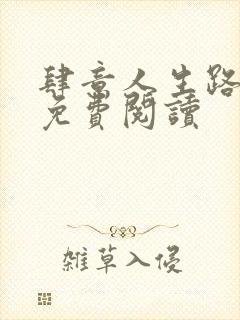 肆意人生路
免費閱讀
雜草入侵